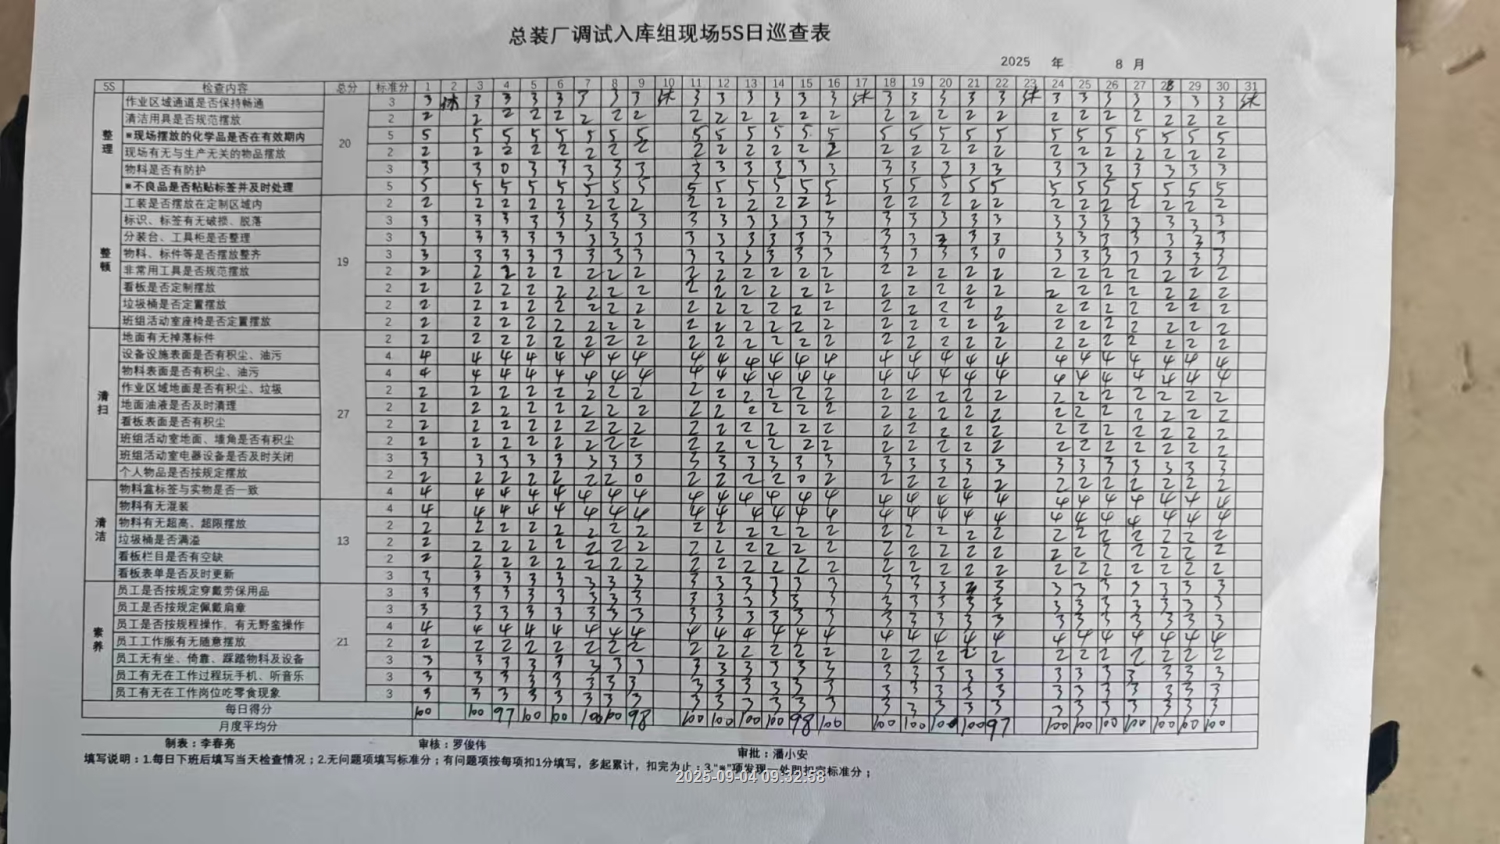 总装厂调试入库组现场5S日巡查表
2025 年 8 月
5S 检查内容 总分 标准分 1 2 3 4 5 6 7 8 9 10 11 12 13 14 15 16 17 18 19 20 21 22 23 24 25 26 27 28 29 30 31
整理 20
作业区域通道是否保持畅通 3 3 休 3 3 3 3 3 3 3 休 3 3 3 3 3 3 休 3 3 3 3 3 休 3 3 3 3 3 3 3 休
清洁用具是否规范摆放 2 2 2 2 2 2 2 2 2 2 2 2 2 2 2 2 2 2 2 2 2 2 2 2 2 2 2
※现场摆放的化学品是否在有效期内 5 5 5 5 5 5 5 5 5 5 5 5 5 5 5 5 5 5 5 5 5 5 5 5 5 5 5
现场有无与生产无关的物品摆放 2 2 2 2 2 2 2 2 2 2 2 2 2 2 2 2 2 2 2 2 2 2 2 2 2 2 2
物料是否有防护 3 3 3 0 3 3 3 3 3 3 3 3 3 3 3 3 3 3 3 3 3 3 3 3 3 3 3
※不良品是否粘贴标签并及时处理 5 5 5 5 5 5 5 5 5 5 5 5 5 5 5 5 5 5 5 5 5 5 5 5 5 5 5
整顿 19
工装是否摆放在定制区域内 2 2 2 2 2 2 2 2 2 2 2 2 2 2 2 2 2 2 2 2 2 2 2 2 2 2 2
标识、标签有无破损、脱落 3 3 3 3 3 3 3 3 3 3 3 3 3 3 3 3 3 3 3 3 3 3 3 3 3 3 3
分装台、工具柜是否整理 3 3 3 3 3 3 3 3 3 3 3 3 3 3 3 3 3 3 3 3 3 3 3 3 3 3 3
物料、标件等是否摆放整齐 3 3 3 3 3 3 3 3 3 3 3 3 3 3 3 3 3 3 3 3 0 3 3 3 3 3 3 3
非常用工具是否规范摆放 2 2 2 2 2 2 2 2 2 2 2 2 2 2 2 2 2 2 2 2 2 2 2 2 2 2 2
看板是否定制摆放 2 2 2 2 2 2 2 2 2 2 2 2 2 2 2 2 2 2 2 2 2 2 2 2 2 2 2
垃圾桶是否定置摆放 2 2 2 2 2 2 2 2 2 2 2 2 2 2 2 2 2 2 2 2 2 2 2 2 2 2 2
班组活动室座椅是否定置摆放 2 2 2 2 2 2 2 2 2 2 2 2 2 2 2 2 2 2 2 2 2 2 2 2 2 2 2
清扫 27
地面有无掉落标件 2 2 2 2 2 2 2 2 2 2 2 2 2 2 2 2 2 2 2 2 2 2 2 2 2 2 2
设备设施表面是否有积尘、油污 4 4 4 4 4 4 4 4 4 4 4 4 4 4 4 4 4 4 4 4 4 4 4 4 4 4 4
物料表面是否有积尘、油污 4 4 4 4 4 4 4 4 4 4 4 4 4 4 4 4 4 4 4 4 4 4 4 4 4 4 4
作业区域地面是否有积尘、垃圾 2 2 2 2 2 2 2 2 2 2 2 2 2 2 2 2 2 2 2 2 2 2 2 2 2 2 2
地面油液是否及时清理 2 2 2 2 2 2 2 2 2 2 2 2 2 2 2 2 2 2 2 2 2 2 2 2 2 2 2
看板表面是否有积尘 2 2 2 2 2 2 2 2 2 2 2 2 2 2 2 2 2 2 2 2 2 2 2 2 2 2 2
班组活动室地面、墙角是否有积尘 2 2 2 2 2 2 2 2 2 2 2 2 2 2 2 2 2 2 2 2 2 2 2 2 2 2 2
班组活动室电器设备是否及时关闭 3 3 3 3 3 3 3 3 3 3 3 3 3 3 3 3 3 3 3 3 3 3 3 3 3 3 3
个人物品是否按规定摆放 2 2 2 2 2 2 2 2 0 2 2 2 2 0 2 2 2 2 2 2 2 2 2 2 2 2 2
清洁 13
物料盒标签与实物是否一致 4 4 4 4 4 4 4 4 4 4 4 4 4 4 4 4 4 4 4 4 4 4 4 4 4 4 4
物料有无混装 4 4 4 4 4 4 4 4 4 4 4 4 4 4 4 4 4 4 4 4 4 4 4 4 4 4 4
物料有无超高、超限摆放 2 2 2 2 2 2 2 2 2 2 2 2 2 2 2 2 2 2 2 2 2 2 2 2 2 2 2
垃圾桶是否满溢 2 2 2 2 2 2 2 2 2 2 2 2 2 2 2 2 2 2 2 2 2 2 2 2 2 2 2
看板栏目是否有空缺 2 2 2 2 2 2 2 2 2 2 2 2 2 2 2 2 2 2 2 2 2 2 2 2 2 2 2
看板表单是否及时更新 3 3 3 3 3 3 3 3 3 3 3 3 3 3 3 3 3 3 3 3 3 3 3 3 3 3 3
素养 21
员工是否按规定穿戴劳保用品 3 3 3 3 3 3 3 3 3 3 3 3 3 3 3 3 3 3 3 3 3 3 3 3 3 3 3
员工是否按规定佩戴肩章 3 3 3 3 3 3 3 3 3 3 3 3 3 3 3 3 3 3 3 3 3 3 3 3 3 3 3
员工是否按规程操作、有无野蛮操作 4 4 4 4 4 4 4 4 4 4 4 4 4 4 4 4 4 4 4 4 4 4 4 4 4 4 4
员工工作服有无随意摆放 2 2 2 2 2 2 2 2 2 2 2 2 2 2 2 2 2 2 2 2 2 2 2 2 2 2 2
员工无有坐、倚靠、踩踏物料及设备 3 3 3 3 3 3 3 3 3 3 3 3 3 3 3 3 3 3 3 3 3 3 3 3 3 3 3
员工有无在工作过程玩手机、听音乐 3 3 3 3 3 3 3 3 3 3 3 3 3 3 3 3 3 3 3 3 3 3 3 3 3 3 3
员工有无在工作岗位吃零食现象 3 3 3 3 3 3 3 3 3 3 3 3 3 3 3 3 3 3 3 3 3 3 3 3 3 3 3
每日得分 100 100 97 100 100 100 100 98 100 100 100 100 98 100 100 100 100 100 97 100 100 100 100 100 100 100
月度平均分
制表：李春亮 审核：罗俊伟 审批：潘小安
填写说明：1.每日下班后填写当天检查情况；2.无问题项填写标准分；有问题项按每项扣1分填写，多起累计，扣完为止；3."※"项发现一处即扣完标准分；
2025-09-04 09:32:58